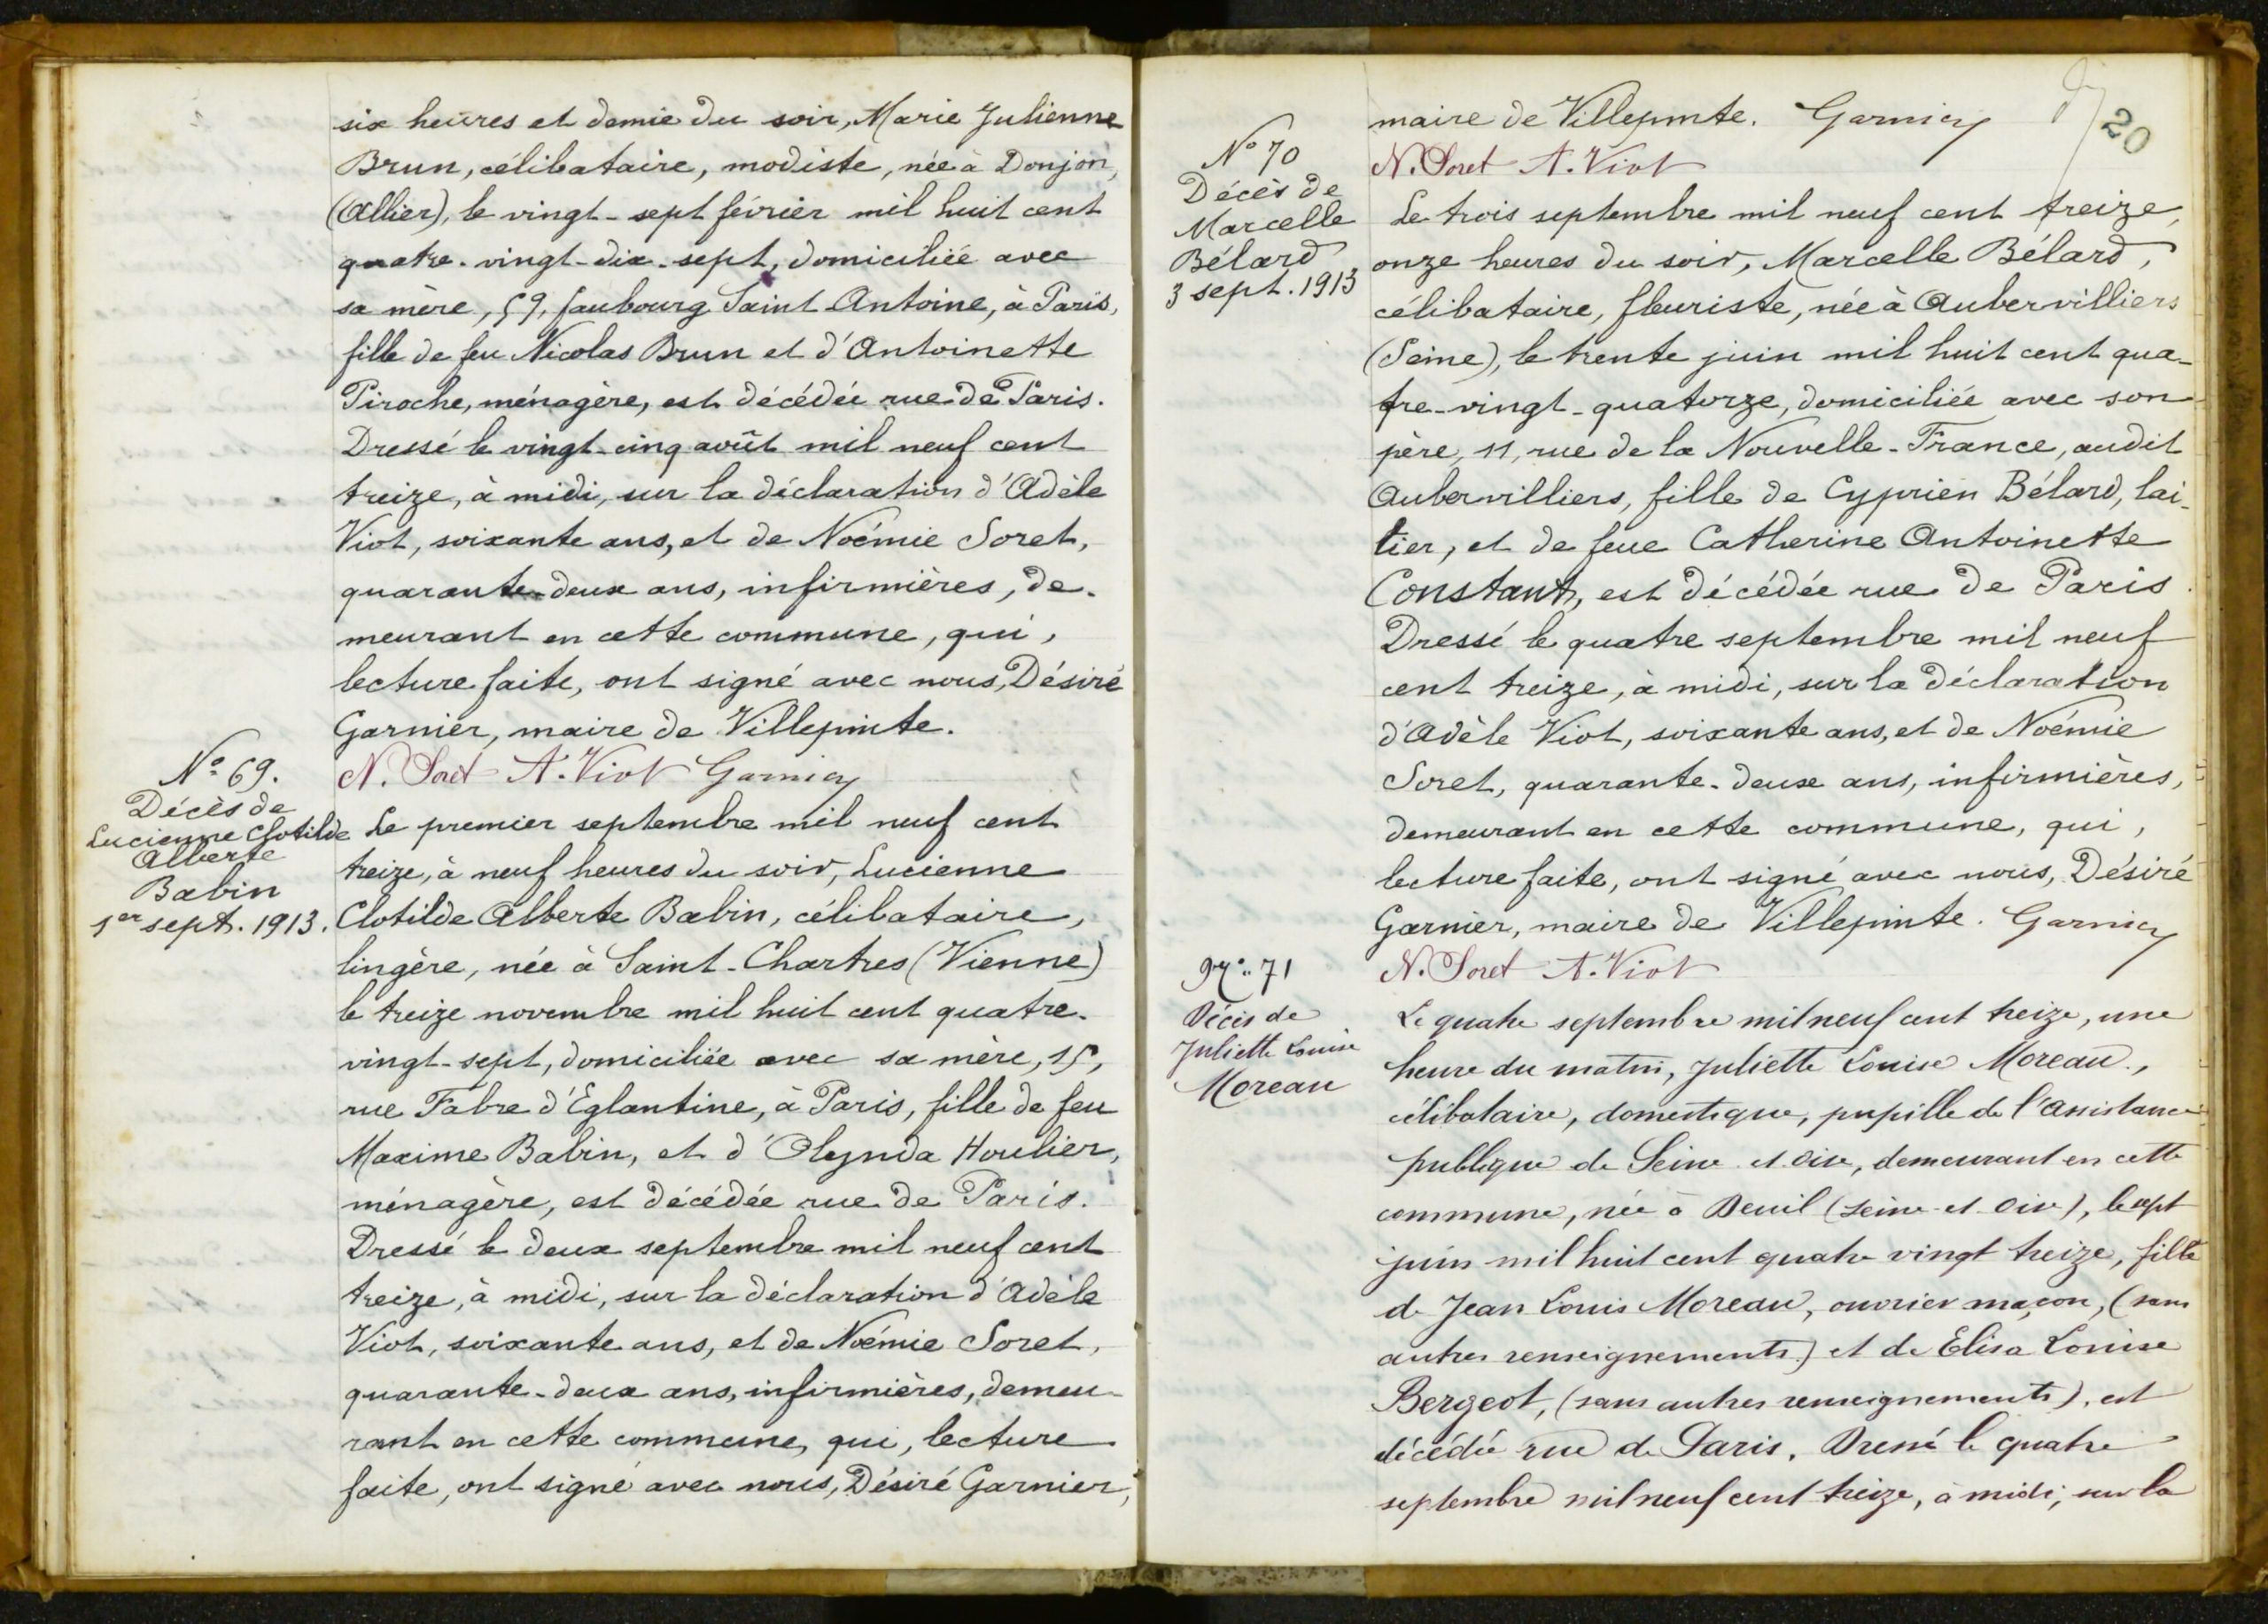 six heures et demie du soir, Marie Julienne
Brun, célibataire, modiste, née à Donjon,
(Allier), le vingt-sept février mil huit cent
quatre-vingt-dix-sept, domiciliée avec
sa mère, 59, faubourg Saint Antoine, à Paris,
fille de feu Nicolas Brun et d'Antoinette
Piroche, ménagère, est décédée rue de Paris.
Dressé le vingt-cinq août mil neuf cent
treize, à midi, sur la déclaration d'Adèle
Viot, soixante ans, et de Noémie Soret,
quarante-deux ans, infirmières, de-
meurant en cette commune, qui,
lecture faite, ont signé avec nous, Désiré
Garnier, maire de Villepinte.
N. Soret A. Viot Garnier
No 69.
Décès de
Lucienne Clotilde
Alberte
Babin
1er sept. 1913.
Le premier septembre mil neuf cent
treize, à neuf heures du soir, Lucienne
Clotilde Alberte Babin, célibataire,
lingère, née à Saint-Chartres (Vienne)
le treize novembre mil huit cent quatre-
vingt-sept, domiciliée avec sa mère, 15,
rue Fabre d'Eglantine, à Paris, fille de feu
Maxime Babin, et d'Olynda Houlier,
ménagère, est décédée rue de Paris.
Dressé le deux septembre mil neuf cent
treize, à midi, sur la déclaration d'Adèle
Viot, soixante ans, et de Noémie Soret,
quarante-deux ans, infirmières, demeu-
rant en cette commune, qui, lecture
faite, ont signé avec nous, Désiré Garnier,
20
maire de Villepinte. Garnier
N. Soret A. Viot
No 70
Décès de
Marcelle
Bélard
3 sept. 1913
Le trois septembre mil neuf cent treize,
onze heures du soir, Marcelle Bélard,
célibataire, fleuriste, née à Aubervilliers
(Seine), le trente juin mil huit cent qua-
tre-vingt-quatorze, domiciliée avec son
père, 11, rue de la Nouvelle-France, audit
Aubervilliers, fille de Cyprien Bélard, lai-
tier, et de feue Catherine Antoinette
Constant, est décédée rue de Paris.
Dressé le quatre septembre mil neuf
cent treize, à midi, sur la déclaration
d'Adèle Viot, soixante ans, et de Noémie
Soret, quarante-deux ans, infirmières,
demeurant en cette commune, qui,
lecture faite, ont signé avec nous, Désiré
Garnier, maire de Villepinte. Garnier
N. Soret A. Viot
No 71
Décès de
Juliette Louise
Moreau
Le quatre septembre mil neuf cent treize, une
heure du matin, Juliette Louise Moreau,
célibataire, domestique, pupille de l'assistance
publique de Seine et Oise, demeurant en cette
commune, née à Deuil (Seine-et-Oise), le sept
juin mil huit cent quatre vingt treize, fille
de Jean Louis Moreau, ouvrier maçon, (sans
autres renseignements) et de Elisa Louise
Bergeot, (sans autres renseignements), est
décédée rue de Paris. Dressé le quatre
septembre mil neuf cent treize, à midi, sur la